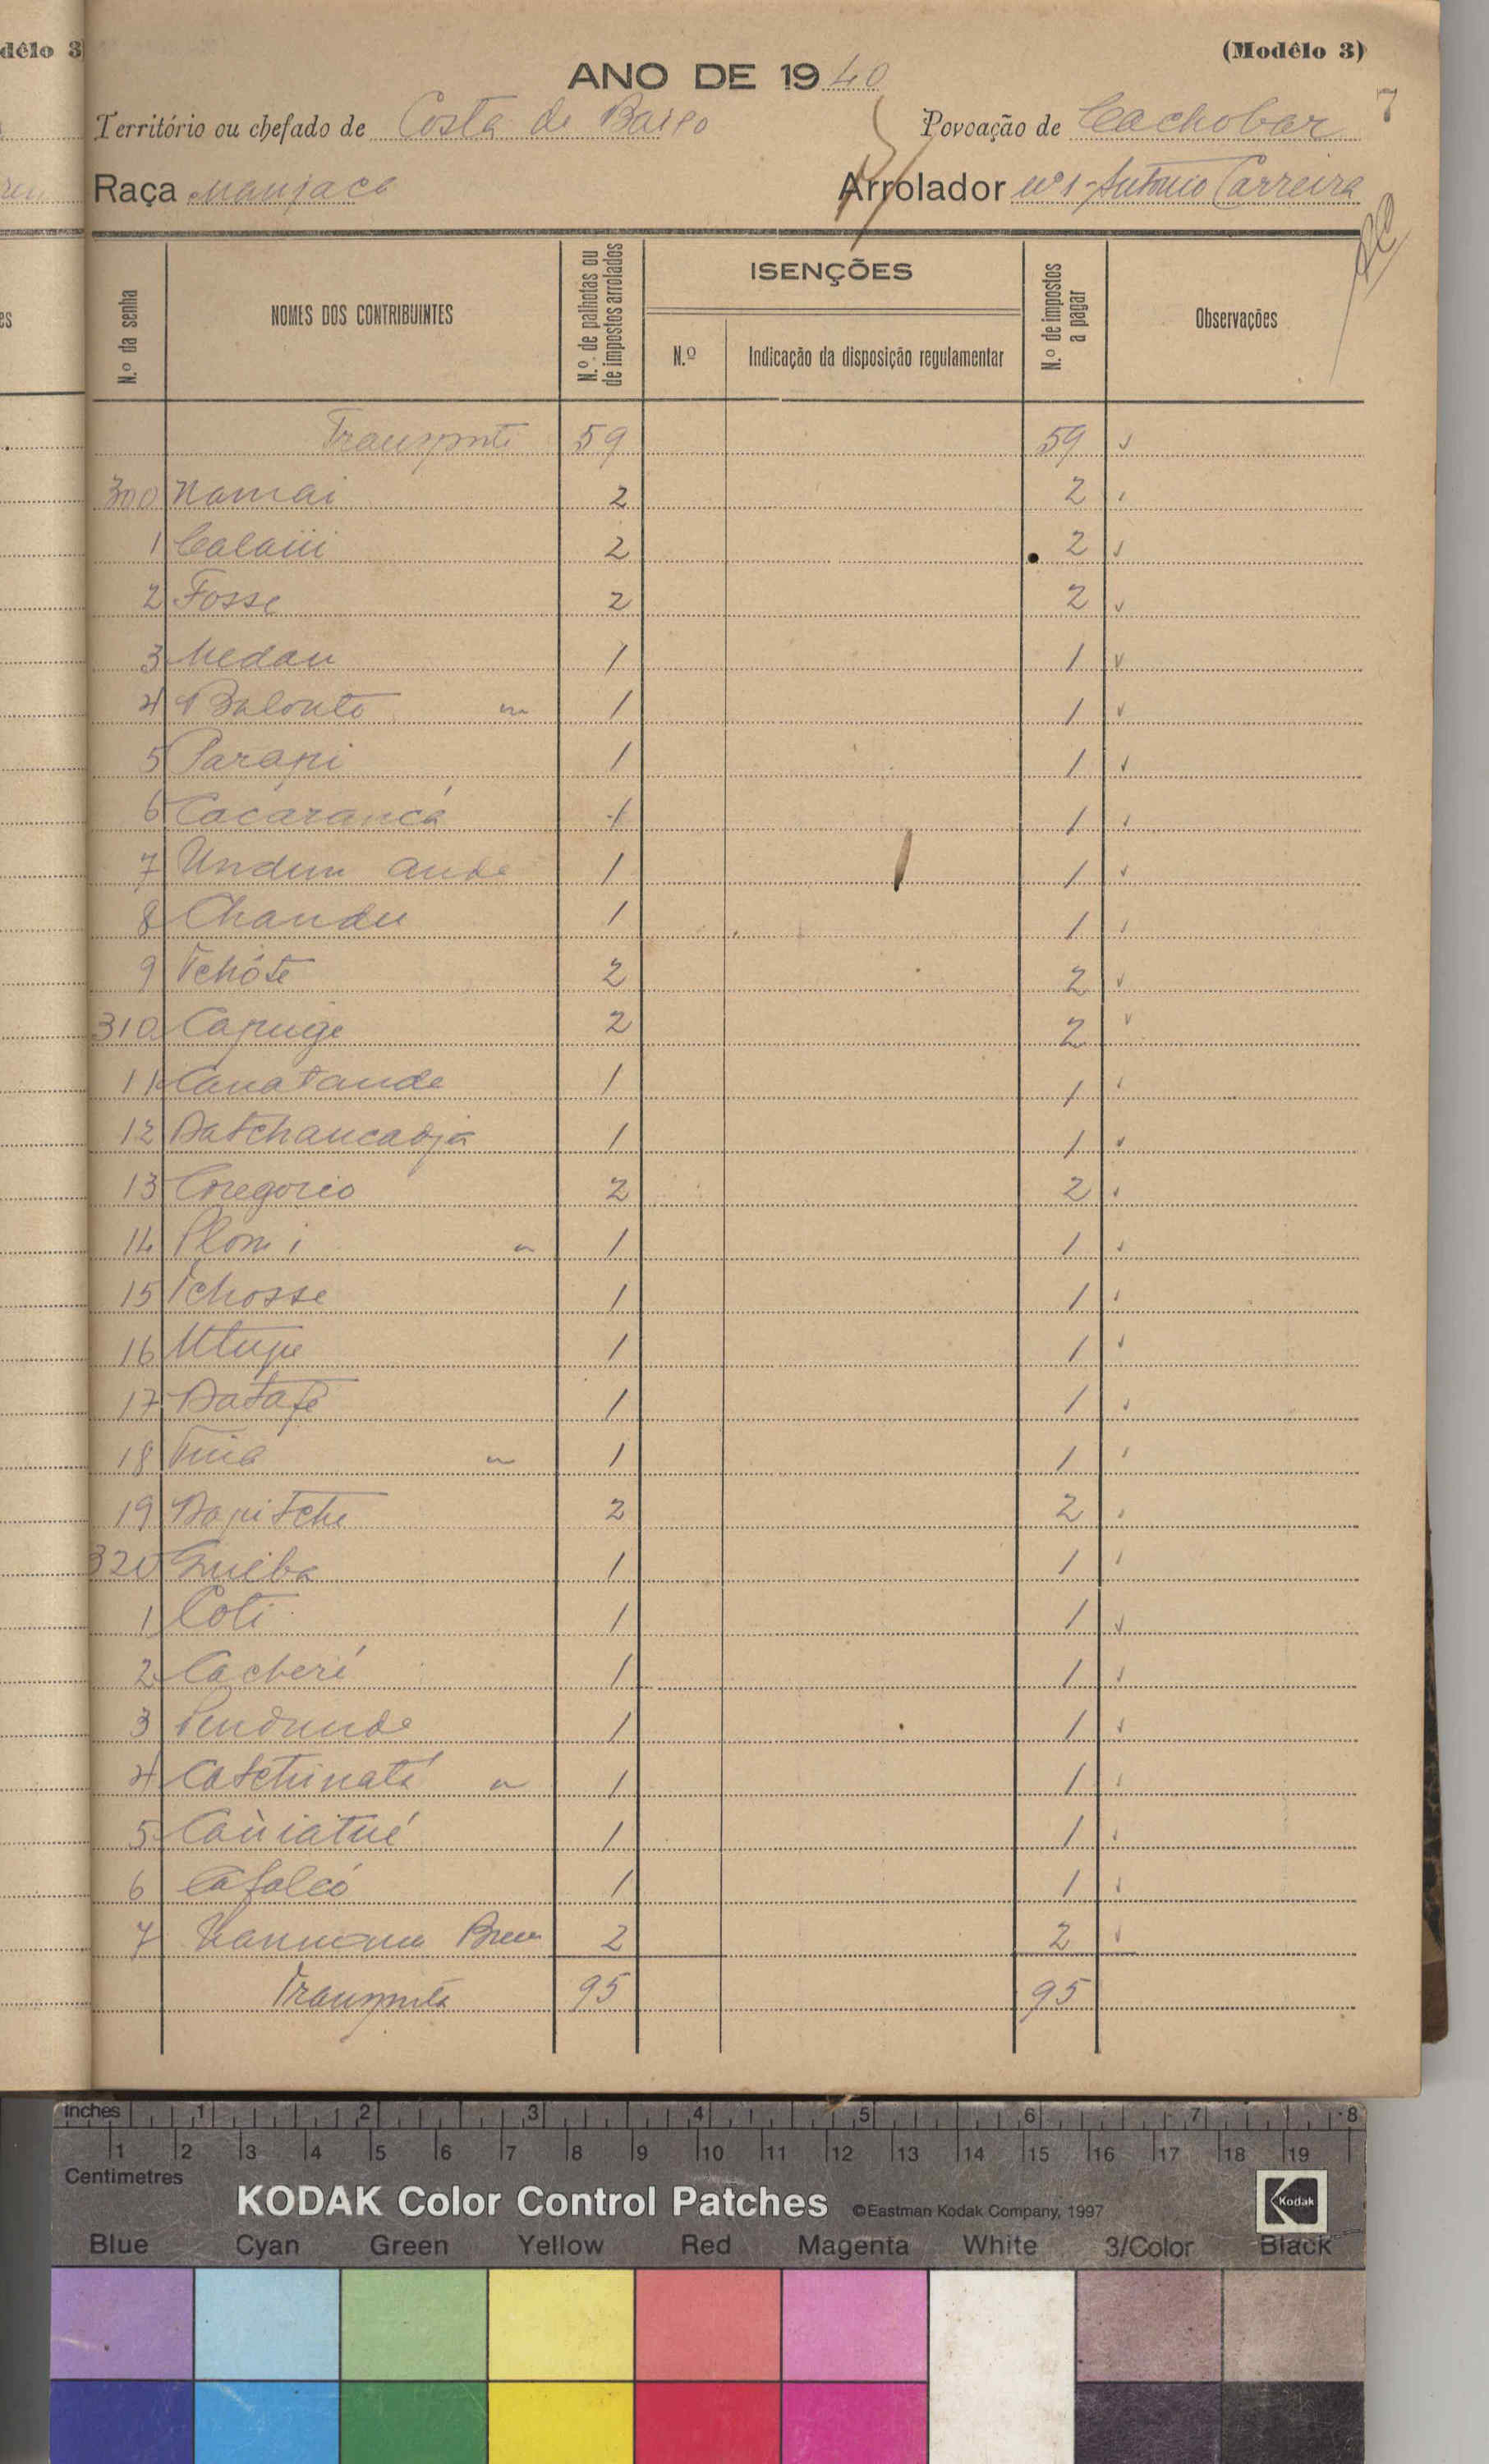 dêlo 3
(Modêlo 3)
7
ANO DE 1940
Território ou chefado de Costa de Baixo Povoação de Cachobar
Raça Manjaca Arrolador nº 1 - António Carreira
N.º da senha NOMES DOS CONTRIBUINTES N.º de palhotas ou de impostos arrolados ISENÇÕES N.º Indicação da disposição regulamentar N.º de impostos a pagar Observações
Transporte 59 59
300 Namai 2 2
1 Calaiii 2 2
2 Fosse 2 2
3 Medau 1 1
4 Balonto 1 1
5 Parapi 1 1
6 Cacarancá 1 1
7 Undum ande 1 1
8 Chandu 1 1
9 Tchóte 2 2
310 Capuge 2 2
11 Canatande 1 1
12 Datchancadja 1 1
13 Gregorio 2 2
14 Plomi 1 1
15 Tchosse 1 1
16 Utupe 1 1
17 Datafe 1 1
18 1 1
19 Dapitche 2 2
320 Gueba 1 1
1 Coti 1 1
2 Cacheré 1 1
3 1 1
4 Catchinatá 1 1
5 Caùiatué 1 1
6 Cafalcó 1 1
7 2 2
Transporte 95 95
inches 1 2 3 4 5 6 7 8
1 2 3 4 5 6 7 8 9 10 11 12 13 14 15 16 17 18 19
Centimetres
KODAK Color Control Patches ©Eastman Kodak Company, 1997 Kodak
Blue Cyan Green Yellow Red Magenta White 3/Color Black